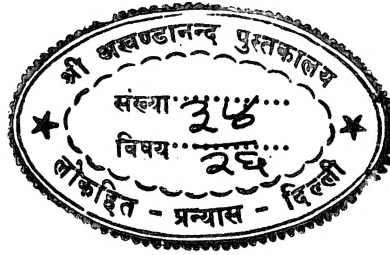 श्री अखण्डानन्द पुस्तकालय
संख्या
विषय २६
लोकहित - प्रन्यास - दिल्ली